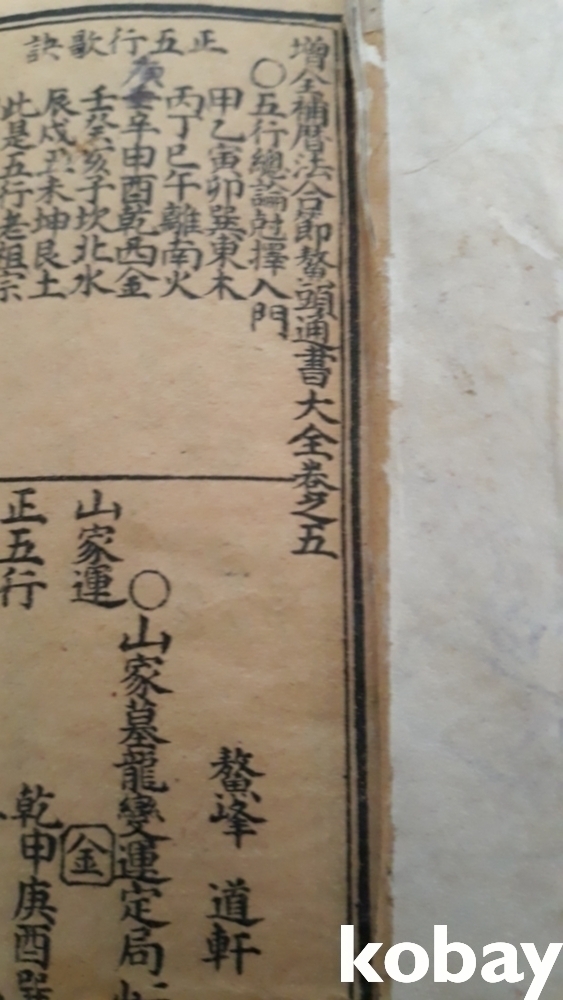 增全補曆法合節鰲頭通書大全卷之五
○五行總論尅擇入門
正五行歌訣
甲乙寅卯巽東木
丙丁巳午離南火
庚辛申酉乾西金
壬癸亥子坎北水
辰戌丑未坤艮土
此是五行老祖宗
鰲峰 道軒
○山家墓龍變運定局
山家運
金
正五行
乾申庚酉巽
kobay